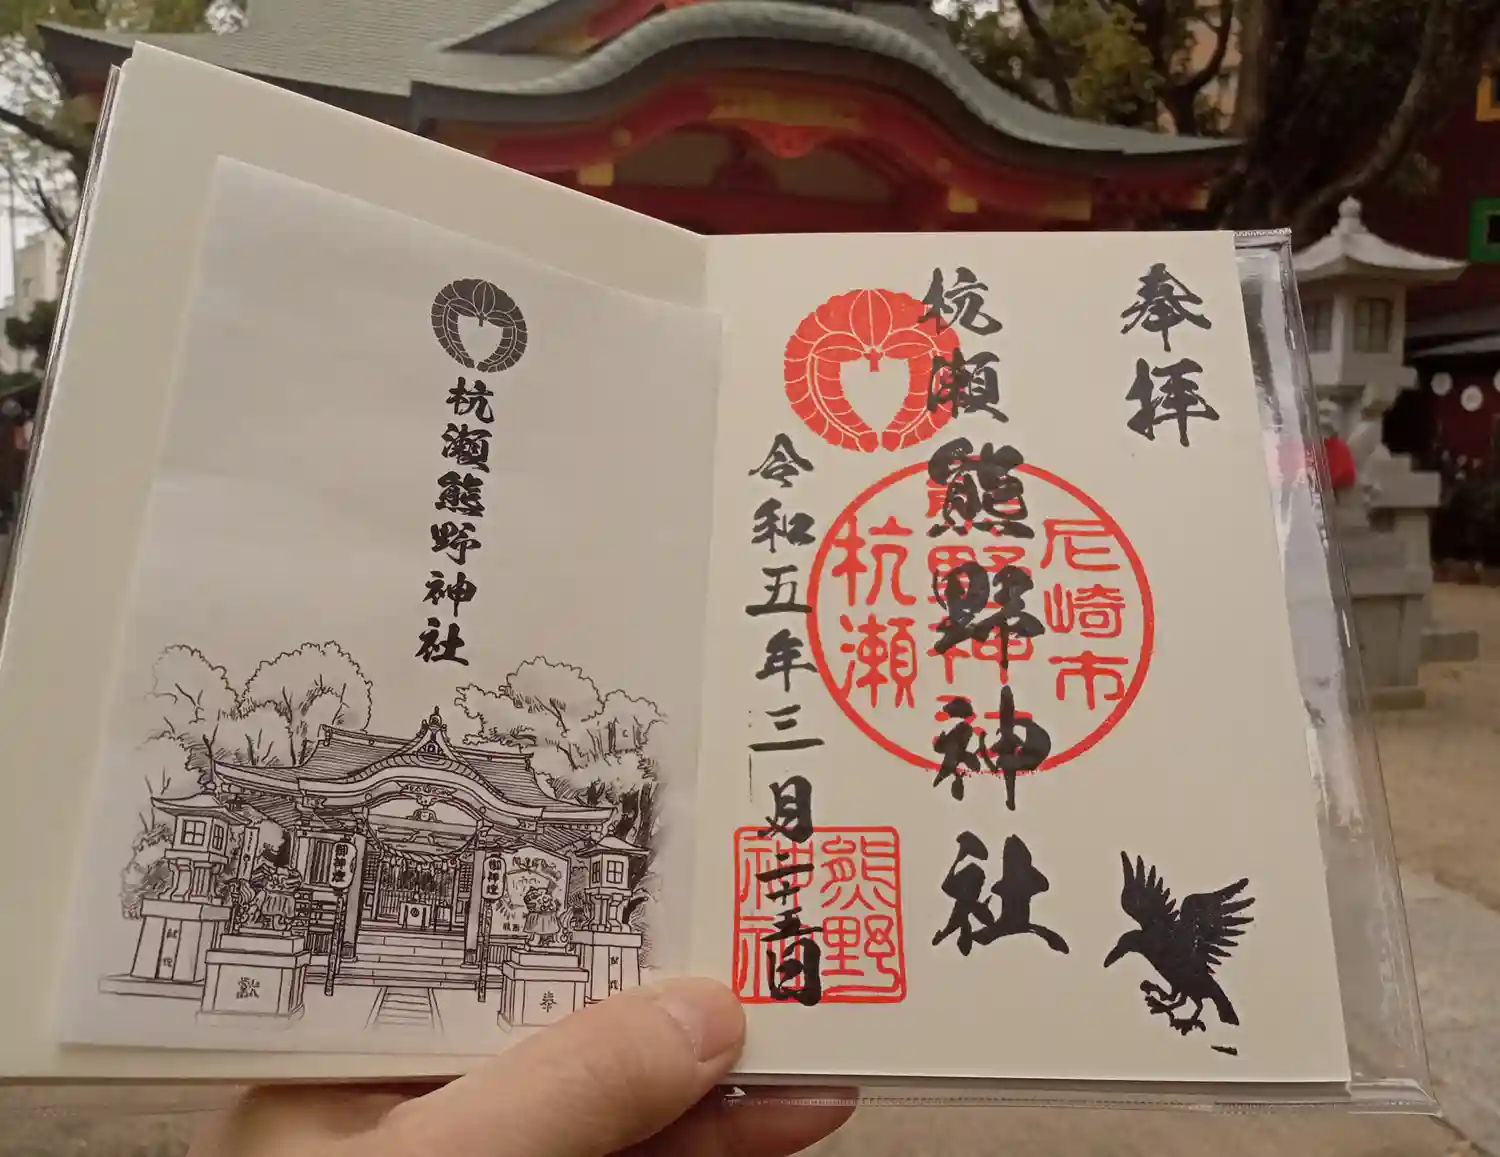 奉拝
杭瀬熊野神社
令和五年三月二十五日
尼崎市
熊野神社
杭瀬
熊野
神社
杭瀬熊野神社
御神燈
御神燈
奉